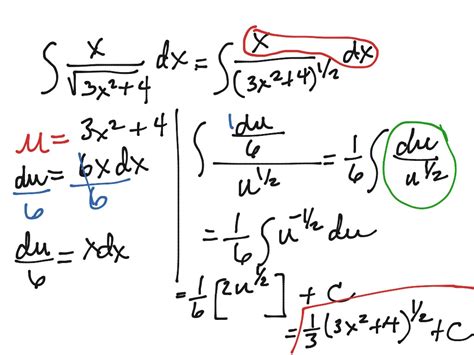 ∫ x/√(3x²+4) dx = ∫ x dx/(3x²+4)^(1/2)
u = 3x²+4
du/6 = 6x dx/6
du/6 = x dx
∫ (1 du/6)/u^(1/2) = 1/6 ∫ du/u^(1/2)
= 1/6 ∫ u^(-1/2) du
= 1/6 [2u^(1/2)] + C
= 1/3 (3x²+4)^(1/2) + C